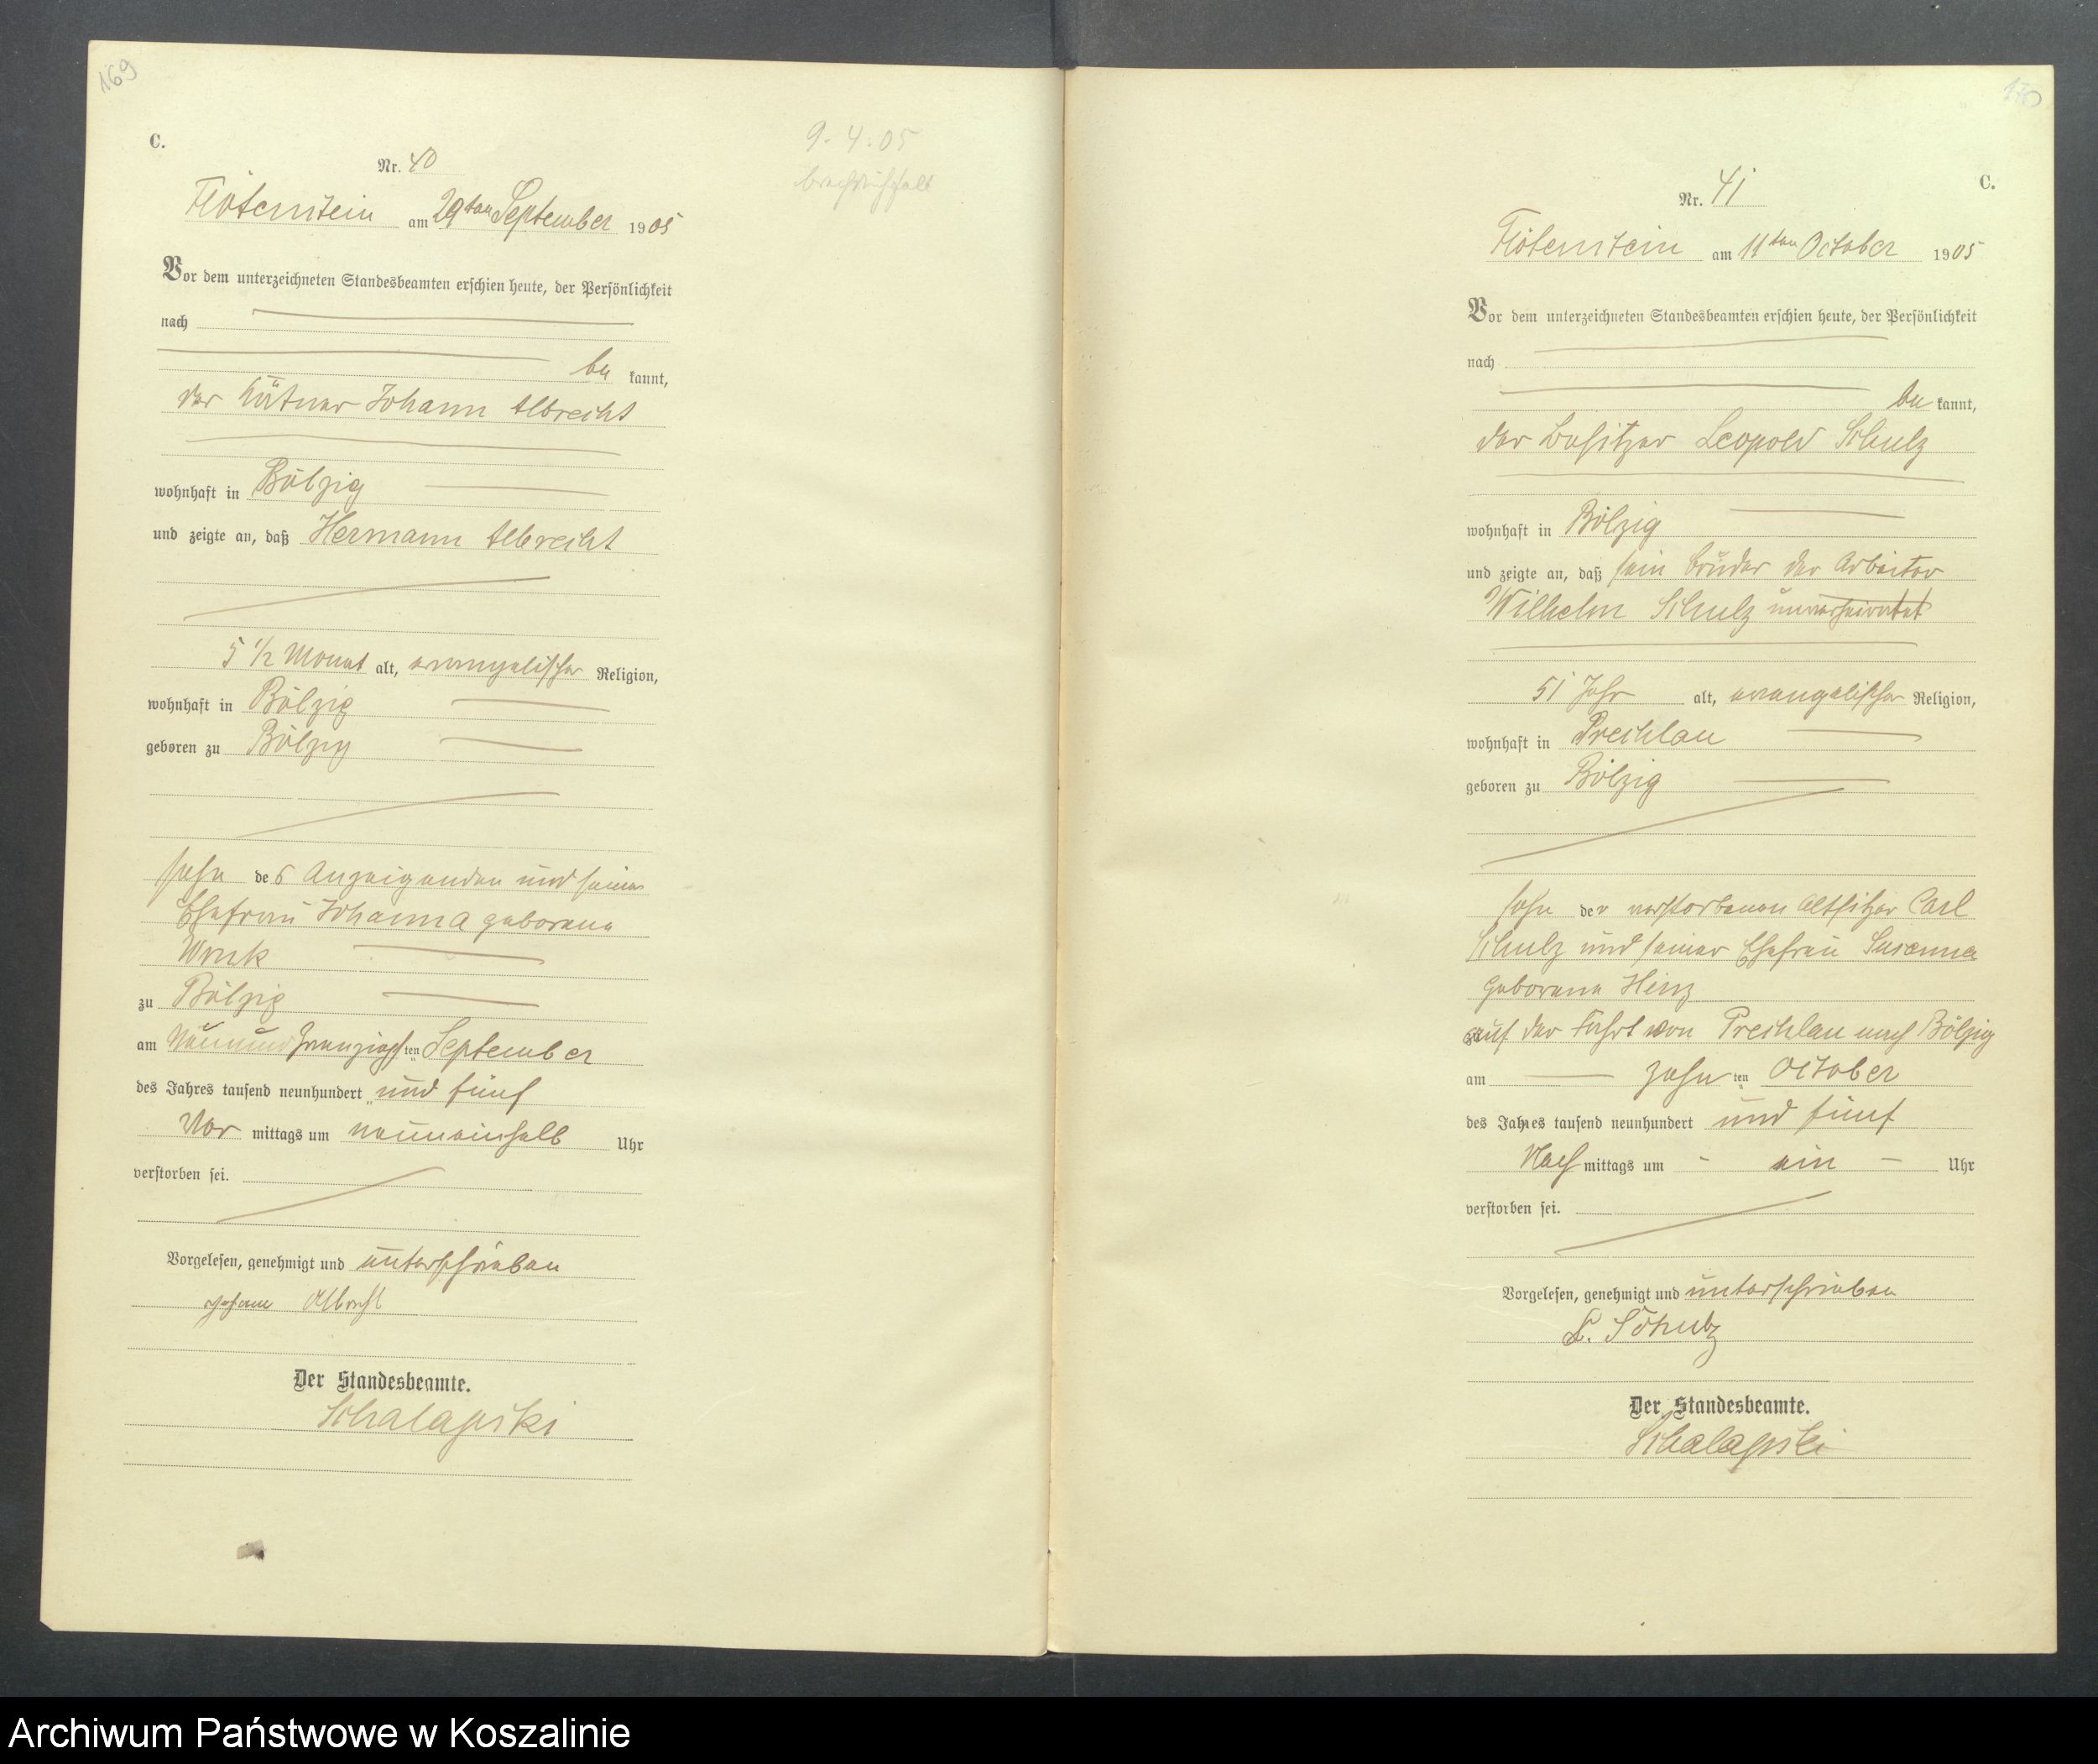 169
C.
Nr. 40
9. 4. 05
Flötenstein am 29ten September 1905
Vor dem unterzeichneten Standesbeamten erschien heute, der Persönlichkeit
nach
be kannt,
der Kätner Johann Albrecht
wohnhaft in Bölzig
und zeigte an, daß Hermann Albrecht
5 1/2 Monat alt, evangelischer Religion,
wohnhaft in Bölzig
geboren zu Bölzig
Sohn des Anzeigenden und seiner
Ehefrau Johanna geborene
Wruk
zu Bölzig
am Neunundzwanzigsten September
des Jahres tausend neunhundert und fünf
Vor mittags um neuneinhalb Uhr
verstorben sei.
Vorgelesen, genehmigt und unterschrieben
Johann Albrecht
Der Standesbeamte.
170
C.
Nr. 41
Flötenstein am 11ten October 1905
Vor dem unterzeichneten Standesbeamten erschien heute, der Persönlichkeit
nach
be kannt,
der Besitzer Leopold Schulz
wohnhaft in Bölzig
und zeigte an, daß sein Bruder der Arbeiter
Wilhelm Schulz unverheiratet
51 Jahr alt, evangelischer Religion,
wohnhaft in Prechlau
geboren zu Bölzig
Sohn der verstorbenen Altsitzer Carl
Schulz und seiner Ehefrau Susanna
geborene Hinz
auf der Fahrt von Prechlau nach Bölzig
am zehn ten October
des Jahres tausend neunhundert und fünf
Nach mittags um ein Uhr
verstorben sei.
Vorgelesen, genehmigt und unterschrieben
L. Schulz
Der Standesbeamte.
Archiwum Państwowe w Koszalinie